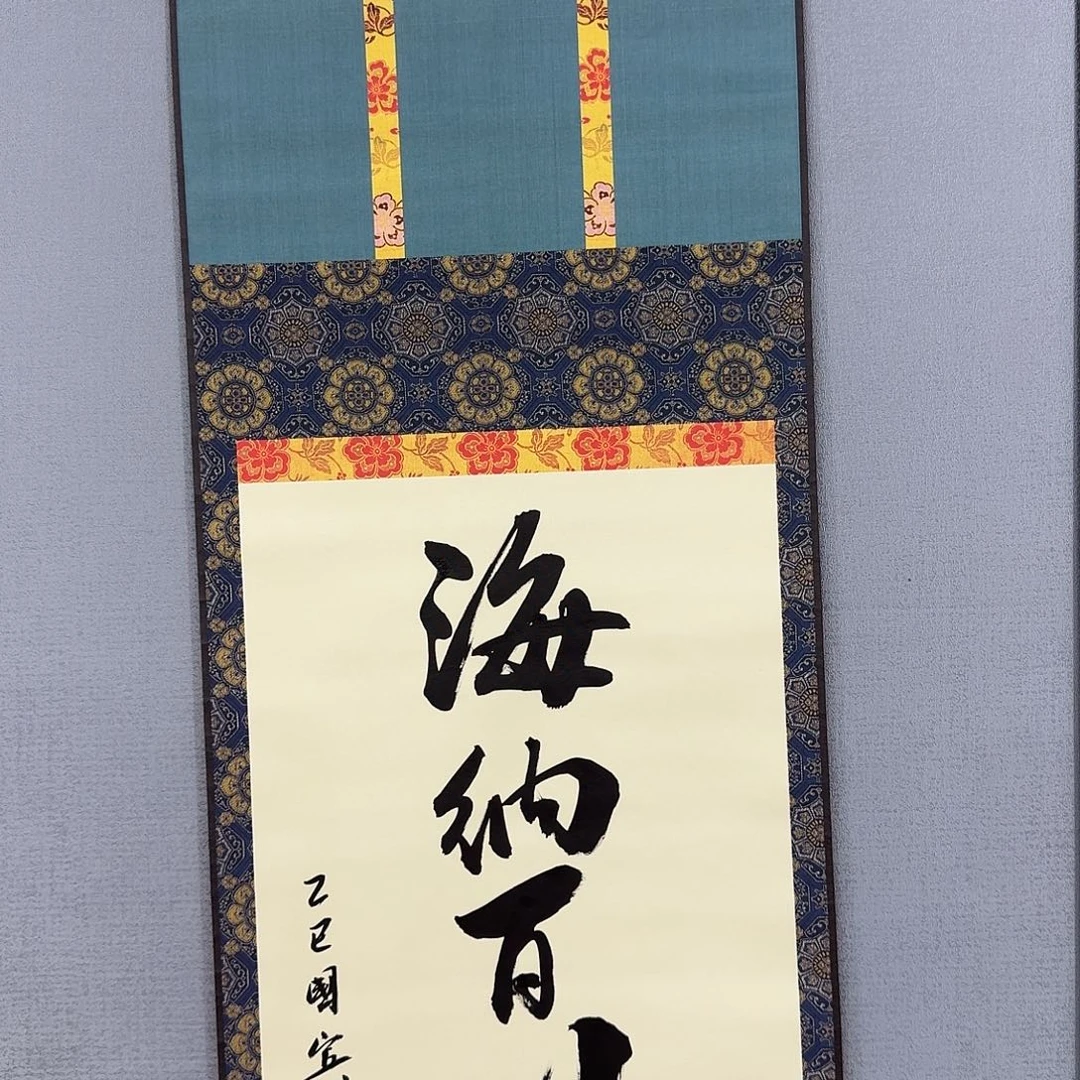 海納百
乙巳國宣